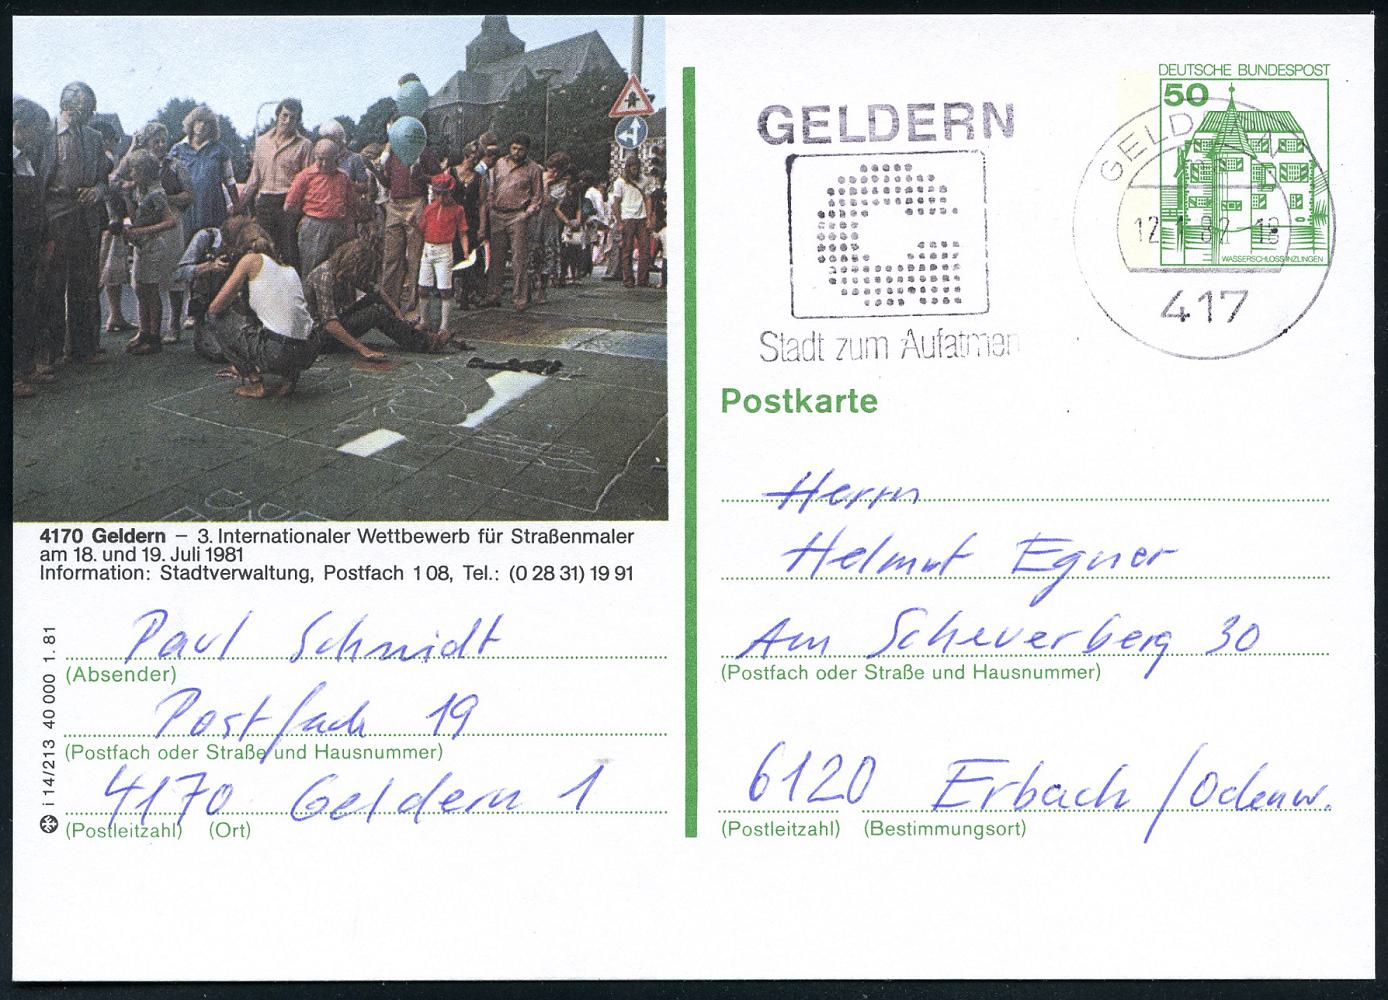 4170 Geldern – 3. Internationaler Wettbewerb für Straßenmaler
am 18. und 19. Juli 1981
Information: Stadtverwaltung, Postfach 1 08, Tel.: (0 28 31) 19 91
Paul Schmidt
(Absender)
Postfach 19
(Postfach oder Straße und Hausnummer)
4170 Geldern 1
(Postleitzahl) (Ort)
i 14/213 40 000 1. 81
GELDERN
Stadt zum Aufatmen
DEUTSCHE BUNDESPOST
50
WASSERSCHLOSS INZLINGEN
12.1.82 18
417
Postkarte
Herrn
Helmut Egner
Am Scheuerberg 30
(Postfach oder Straße und Hausnummer)
6120 Erbach /Odenw.
(Postleitzahl) (Bestimmungsort)